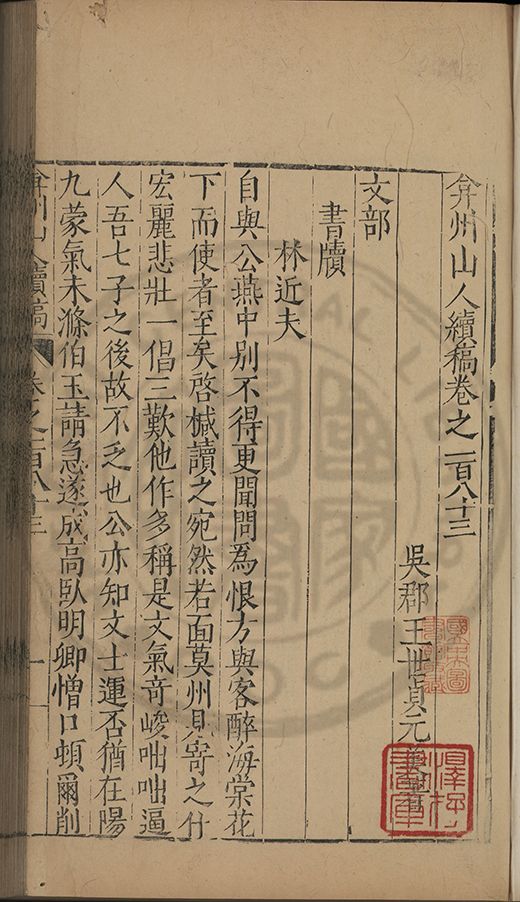 弇州山人續稿卷之一百八十三
吳郡王世貞元美著
文部
書牘
林近夫
自與公燕中別不得更聞問爲恨方與客醉海棠花
下而使者至矣啓椷讀之宛然若面莫州見寄之什
宏麗悲壯一倡三歎他作多稱是文氣奇峻咄咄逼
人吾七子之後故不乏也公亦知文士運否猶在陽
九蒙氣未滌伯玉請急遂成高臥明卿憎口頓爾削
弇州山人續稿 卷之一百八十三 一